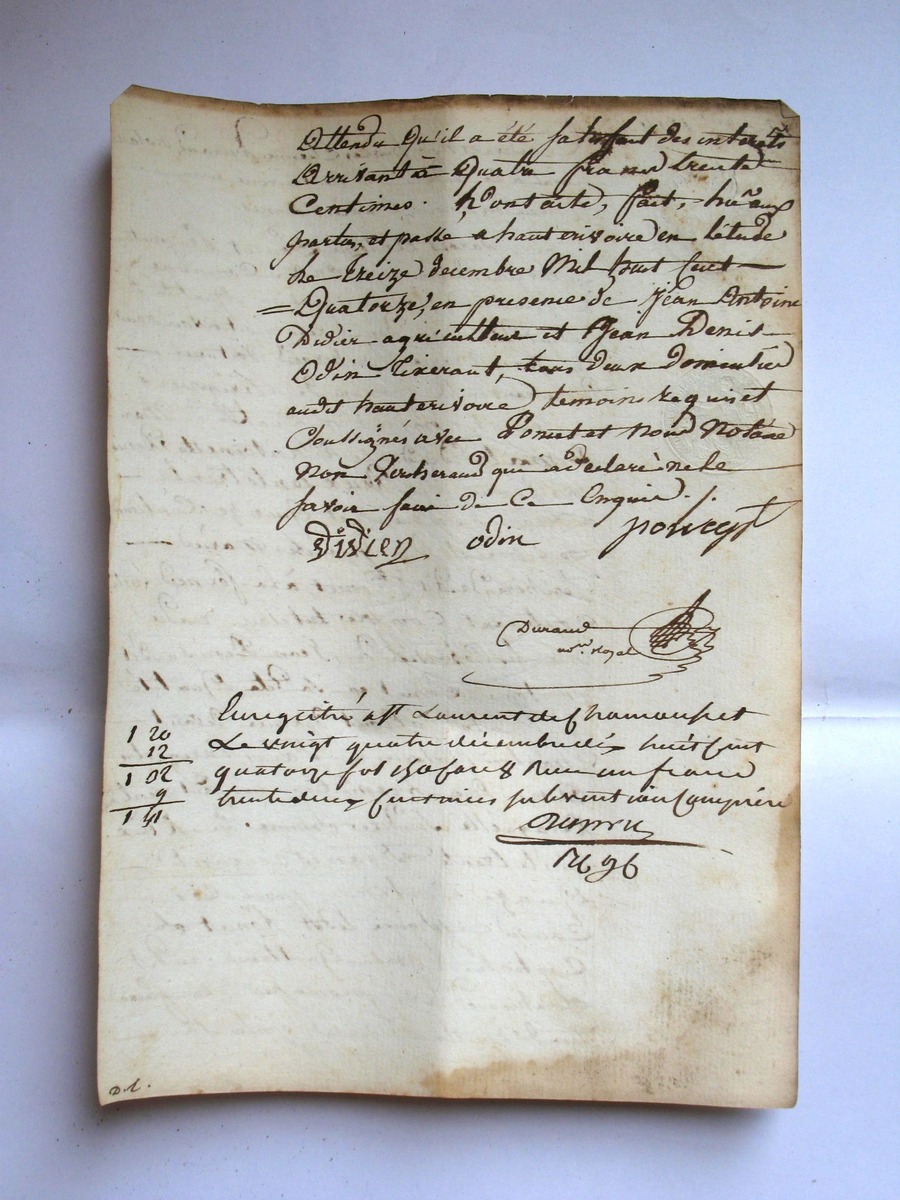 Attendu qu'il a été satisfait des interets
Arrivant à Quatre francs trente
Centimes. Dont acte, fait, lu aux
parties, et passé a hauterivoire en l'étude
Le treize decembre Mil huit Cent
= Quatorze, en presence de Jean Antoine
Didier agriculteur et Jean Denis
Odin tixerant, tous deux domiciliés
audit hauterivoire, temoins requis et
Soussignés avec Poncet et nous Notaire
Non qui a declaré ne le
savoir faire de Ce Enquis ./.
didier odin poncet
Durand
nore. Royal
Enregistré à St Laurent de Chamousset
Le vingt quatre décembre huit cent
quatorze fol 150 Reçu un franc
trente deux Centimes subvention Comprise
1 20
12
1 32
9
1 41
1696
D.L.